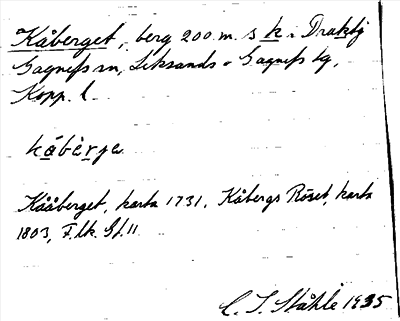 Kåberget, berg 200 m. s k i Drakbj
Gagnefs sn, Leksands o Gagnefs tg,
Kopp. l.
kåbèrjɐ
Kååberget, karta 1731. Kåbergs Röset, karta
1803, F. lk. Gf. 11
C. I. Ståhle 1935